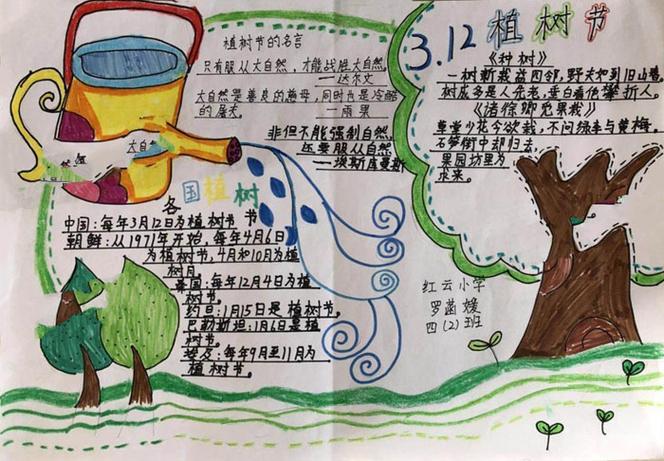 植树节的名言
只有服从大自然,才能战胜大自然。
——达尔文
大自然是善良的慈母,同时也是冷酷
的屠夫。 ——雨果
非但不能强制自然,
还要服从自然。
——埃斯库曼斯
大自
各国植树节
中国:每年3月12日为植树节
朝鲜:从1971年开始,每年4月6日
为植树节,4月和10月为植
树月。
国:每年12月4日为植
树节。
约旦:1月15日是植树节。
巴勒斯坦:1月6日是植
树节。
埃及:每年9月至11月为
植树节。
3.12植树节
《种树》
一树新栽益四邻,野夫如到旧山春。
树成多是人先老,垂白看他攀折人。
《诣徐卿觅果栽》
草堂少花今欲栽,不问绿李与黄梅。
石笋街中却归去,
果园坊里为
求来。
红云小学
罗菡媛
四(2)班